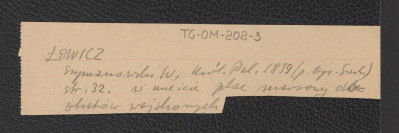 TG-OM-808-3
ŁOWICZ
Szymanowski W., Król. Pol. 1859 (p.
str. 32. w mieście plac marsowy dla
obrotów wojskowych